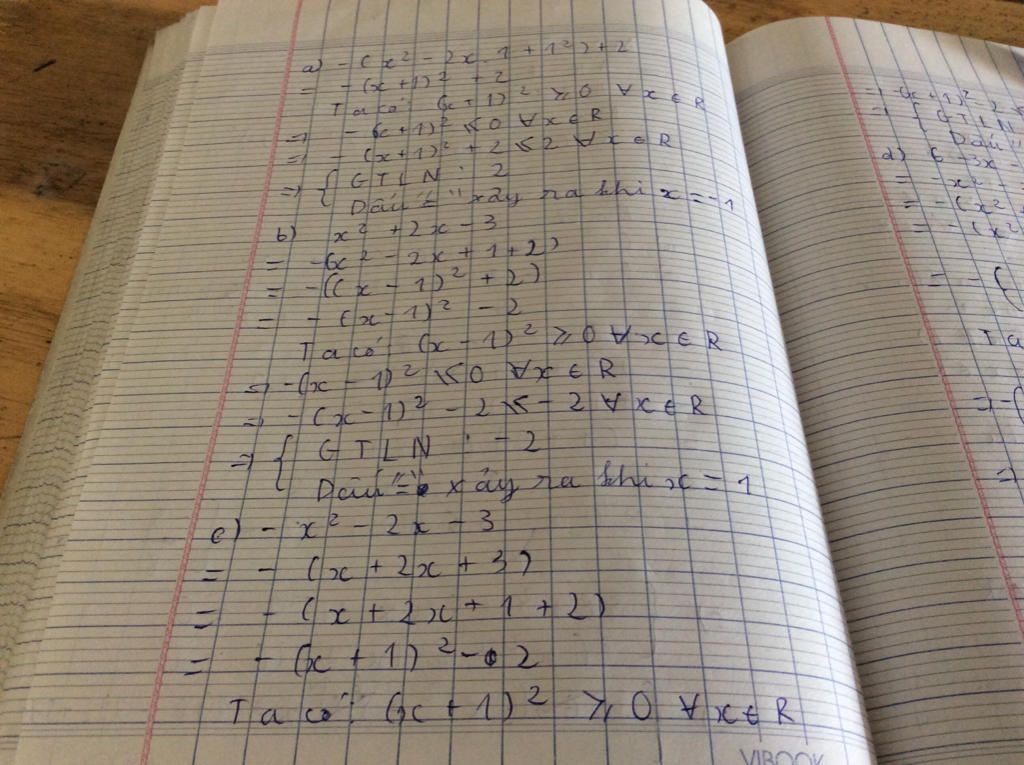 a) -(x² - 2x.1 + 1²) + 2
= -(x+1)² + 2
Ta có: (x+1)² ⩾ 0 ∀x∈R
=> -(x+1)² ⩽ 0 ∀x∈R
=> -(x+1)² + 2 ⩽ 2 ∀x∈R
=> { GTLN : 2
Dấu "=" xảy ra khi x = -1
b) x² + 2x - 3
= -(x² - 2x + 1 + 2)
= -((x - 1)² + 2)
= -(x-1)² - 2
Ta có: (x - 1)² ⩾ 0 ∀x∈R
=> -(x - 1)² ⩽ 0 ∀x∈R
=> -(x-1)² - 2 ⩽ -2 ∀x∈R
=> { GTLN : -2
Dấu "=" xảy ra khi x = 1
c) - x² - 2x - 3
= - (x + 2x + 3)
= - (x + 2x + 1 + 2)
= - (x + 1)² - 2
Ta có: (x + 1)² ⩾ 0 ∀x∈R
VIBOOK
=> -(x+1)² - 2
=> { GTLN
Dấu "
d) 6 - 3x -
= -x² -
= -(x²
= -(x²
= -(
Ta
=> -(
=>